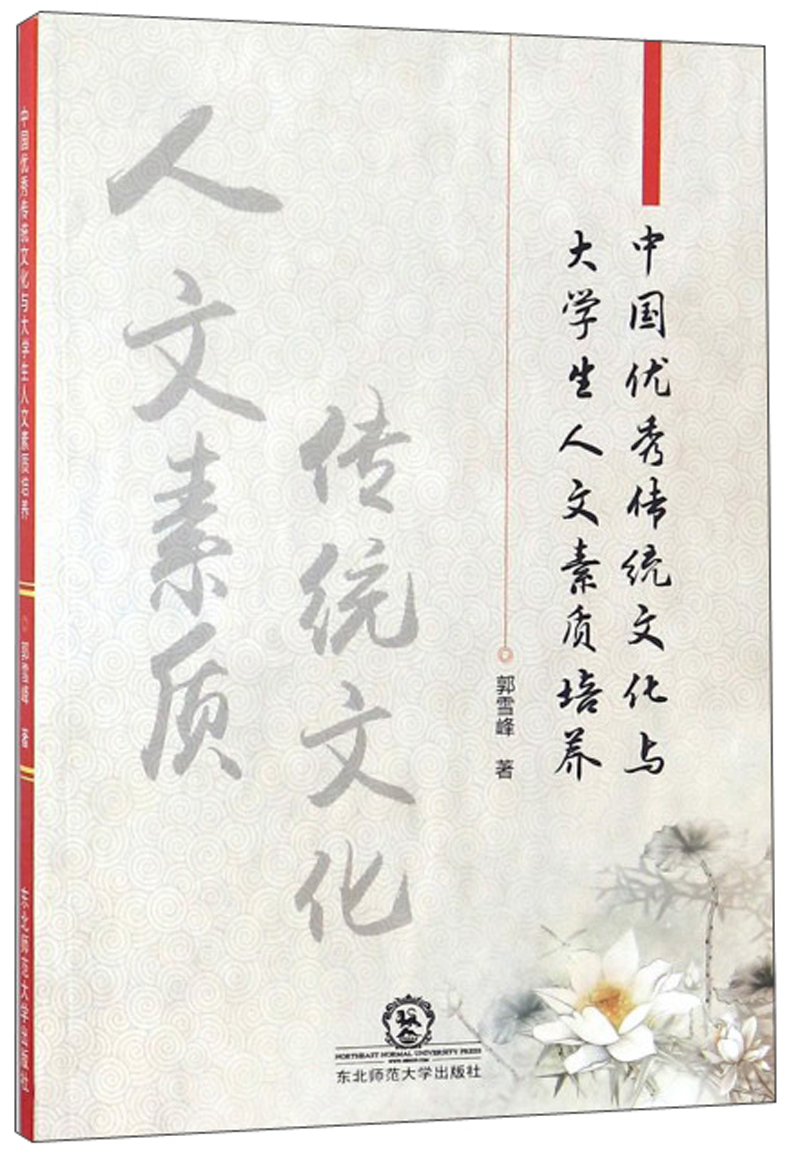 中国优秀传统文化与
大学生人文素质培养
郭雪峰 著
传统文化
人文素质
NORTHEAST NORMAL UNIVERSITY PRESS
东北师范大学出版社
中国优秀传统文化与大学生人文素质培养
郭雪峰 著
东北师范大学出版社